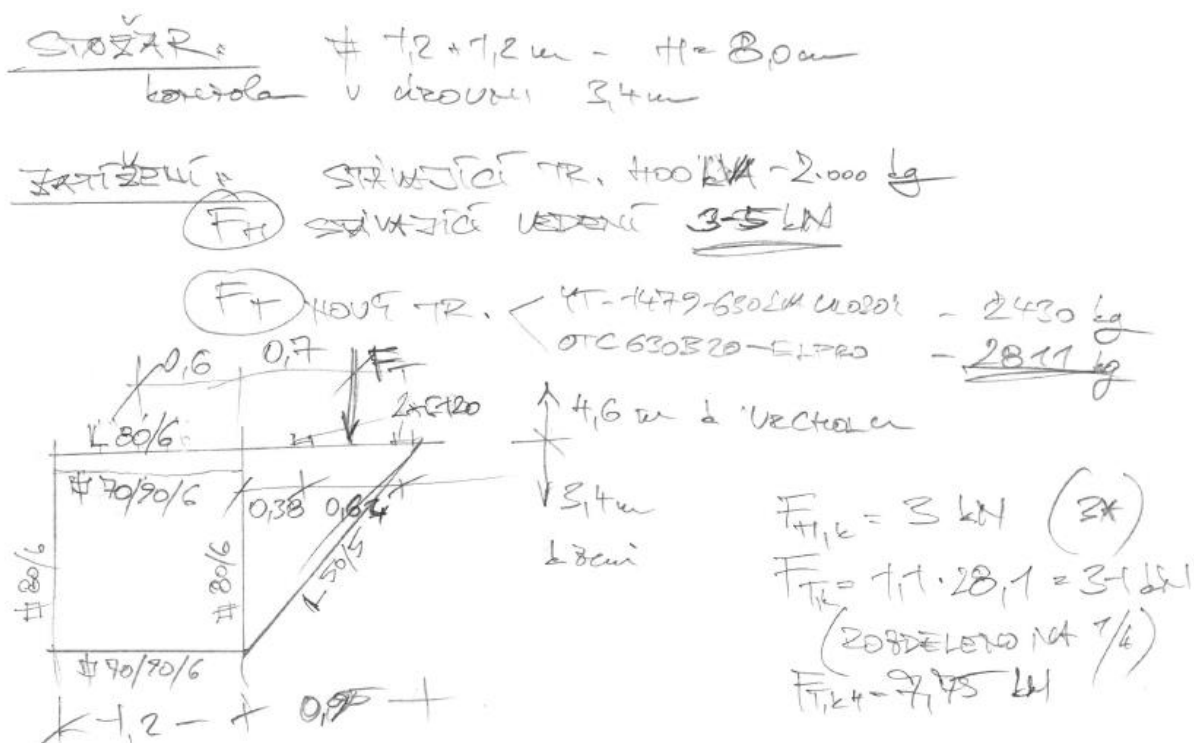 STOŽÁR: # 1,2 * 1,2 m - H= 8,0 m
kontrola v úrovni 3,4 m
ZATÍŽENÍ: STÁVAJÍCÍ TR. 400 kVA - 2.000 kg
FH STÁVAJÍCÍ VEDENÍ 3-5 kN
FT NOVÝ TR. - 2430 kg
OTC 630B20-ELPRO - 2811 kg
0,6 0,7 F
L 80/6
4,6 m k vrcholu
70/90/6
0,38
3,4 m
k zemi
# 80/6
# 80/6
L 50/5
70/90/6
1,2 - 0,95
FH,k = 3 kN (3*)
FT,k = 1,1 · 28,1 = 31 kN
(ROZDĚLENO NA 1/4)
FT,k4 = 7,75 kN